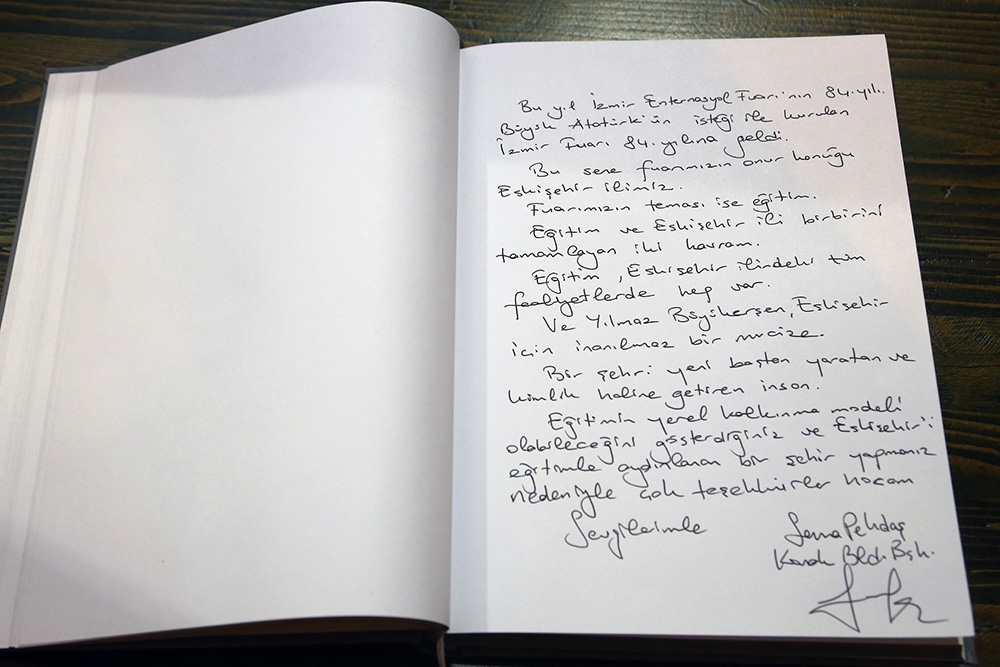 Bu yıl İzmir Enternasyol Fuarı'nın 84. yılı.
Büyük Atatürk'ün isteği ile kurulan
İzmir Fuarı 84. yılına geldi.
Bu sene fuarımızın onur konuğu
Eskişehir ilimiz.
Fuarımızın teması ise eğitim.
Eğitim ve Eskişehir ili birbirini
tamamlayan iki kavram.
Eğitim, Eskişehir ilindeki tüm
faaliyetlerde hep var.
Ve Yılmaz Büyükerşen, Eskişehir
için inanılmaz bir mucize.
Bir şehri yeni baştan yaratan ve
kimlik haline getiren insan.
Eğitimin yerel kalkınma modeli
olabileceğini gösterdiğiniz ve Eskişehir'i
eğitimle aydınlanan bir şehir yapmanız
nedeniyle çok teşekkürler hocam
Sevgilerimle
Sema Pekdaş
Konak Bld. Bşk.